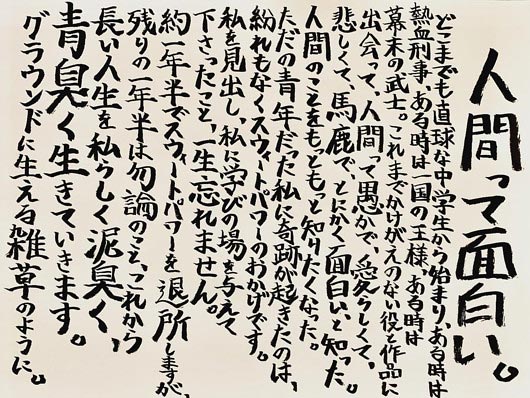 人間って面白い。
どこまでも直球な中学生から始まり、ある時は
熱血刑事、ある時は一国の王様、ある時は
幕末の武士。これまでかけがえのない役と作品に
出会って、人間って愚かで、愛らしくて、
悲しくて、馬鹿で、とにかく面白い、と知った。
人間のことをもっともっと知りたくなった。
ただの青年だった私に奇跡が起きたのは、
紛れもなくスウィートパワーのおかげです。
私を見出し、私に学びの場を与えて
下さったこと、一生忘れません。
約一年半でスウィートパワーを退所しますが、
残りの一年半は勿論のこと、これから
長い人生を私らしく泥臭く、
青臭く生きていきます。
グラウンドに生える雑草のように。